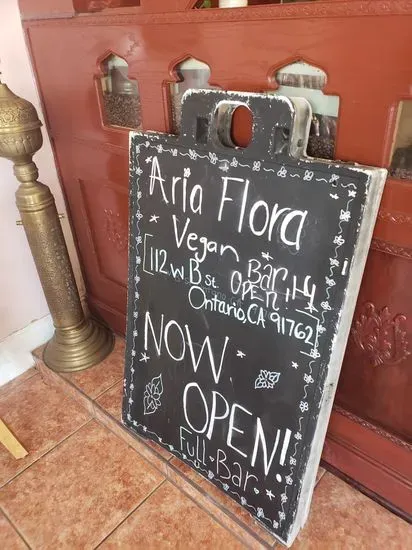 Aria Flora
Vegan Bar
OPEN
112 W B St
Ontario, CA 91762
NOW
OPEN!
Full Bar